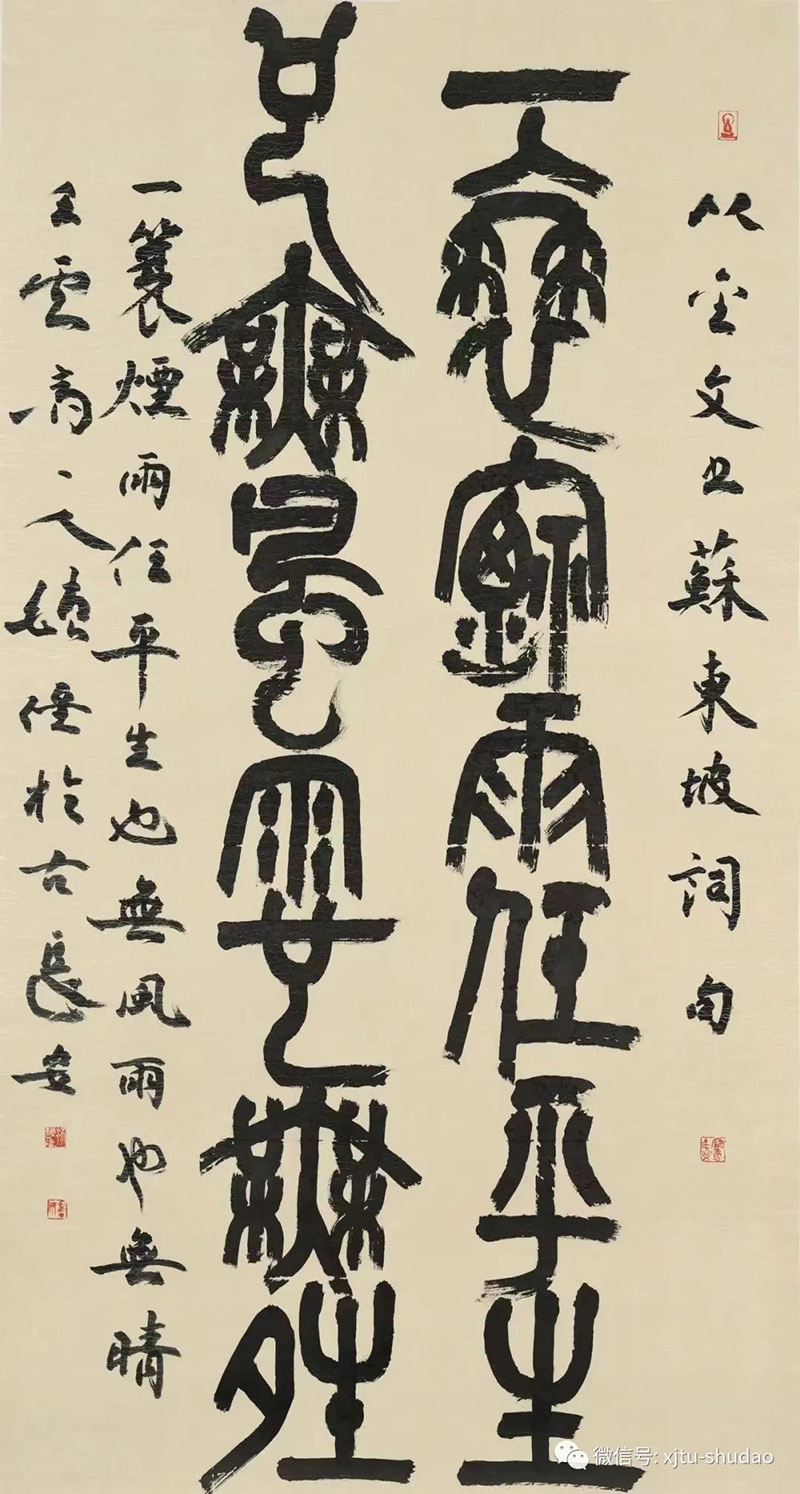 以金文书蘇東坡词句
一蓑煙雨任平生
也無風雨也無晴
一蓑煙雨任平生也無風雨也無晴
於古長安
微信号: xjtu-shudao